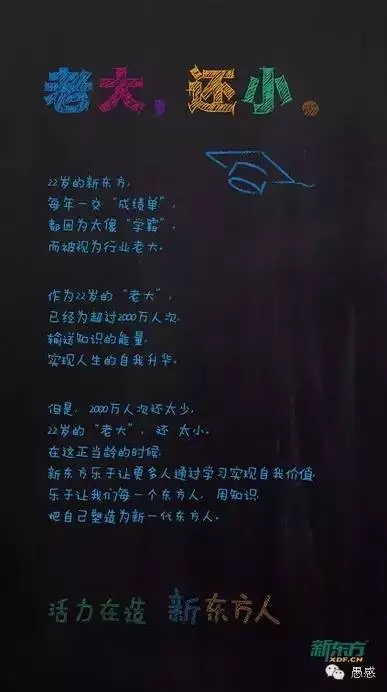 老大，还小。
22岁的新东方，
每年一交“成绩单”，
都因为太像“学霸”，
而被视为行业老大。
作为22岁的“老大”，
已经为超过2000万人次，
输送知识的能量，
实现人生的自我升华。
但是，2000万人次还太少，
22岁的“老大”，还 太小。
在这正当龄的时候，
新东方乐于让更多人通过学习实现自我价值，
乐于让我们每一个东方人，用知识，
把自己塑造为新一代东方人。
活力在造 新东方人
新东方
XDF.CN
愚感